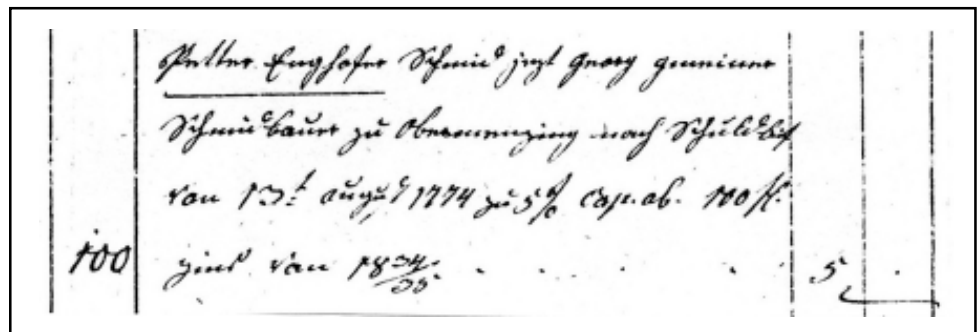 Petter Enghofer Schmid jezt Georg gmeiner
Schmidbauer zu Obermenzing nach Schuldbrf
von 13t. August 1774 zu 5 % Cap. ab. 100 fl.
100 zins von 1834/35 . . . . 5 .